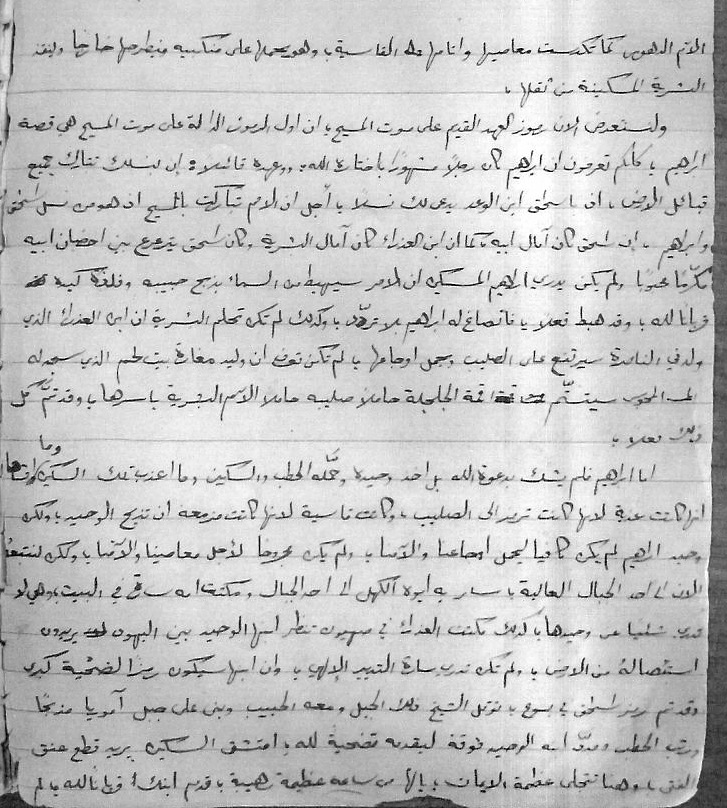 الاثم الدهور كما تكدست معاصيها واثامها القاسية، وهو يحملها على منكبيه فيطرحها خارجا وينقذ
البشرية المسكينة من ثقلها،
ولنستعرض الان رموز العهد القديم على موت المسيح، ان اول الرموز الدالة على موت المسيح هي قصة
ابراهيم، كلكم تعرفون ان ابراهيم كان رجلا مشهورا باختاره الله، ووعده قائلا ان بنسلك تتبارك جميع
قبائل الارض، ان باسحق ابن الوعد يدعى لك نسلا، أجل ان الامم تباركت بالمسيح اذ هو من نسل اسحق
وابراهيم، ان اسحق كان آمال ابيه، كما ان ابن العذراء كان آمال البشرية وكان اسحق يترعرع بين احضان ابيه
مكرما محبوبا ولم يكن يدري ابراهيم المسكين ان الامر سيهبط من السماء بذبح حبيبه وفلذة كبده
قربانا لله، وقد هبط فعلا، فانصاع له ابراهيم بلا تردد، وكذلك لم تكن تحلم البشرية ان ابن العذراء الذي
ولد في الناصرة سيرتفع على الصليب ويحمل اوجاعها، لم تكن تعرف ان وليد مغارة بيت لحم الذي سجد له
المجوس سيتسنم قمة الجلجلة حاملا صليبه حاملا الاثم البشرية باسرها، وقد تم كل
ذلك فعلا،
اما ابراهيم فلم يشك بدعوة الله بل اخذ وحيده وحمله الحطب والسكين وما اعذب تلك السكين وما
انها كانت عذبة لانها كانت ترمز الى الصليب، وكانت قاسية لانها كانت مزمعه ان تذبح الوحيد، ولكن
وحيد ابراهيم لم يكن كافيا ليحمل اوجاعنا والآمنا، ولم يكن مجروحا لأجل معاصينا والآمنا، ولكن لنتبعه
الان الى احد الجبال العالية، سار به أبوه الكهل الى احد الجبال ومكثت امه سارة في البيت، وهي لا
تدري شيئا عن وحيدها، كذلك مكثت العذراء في صهيون تنظر ابنها الوحيد بين اليهود يريدون
استئصاله من الارض، ولم تكن تدري سارة التدبير الالهي، وان ابنها سيكون رمزا لضحية كبرى
وقد تم رمز اسحق في يسوع، توقل الشيخ ذلك الجبل ومعه الحبيب وبنى على جبل آموريا مذبحا
ورتب الحطب ومدد ابنه الوحيد فوقه ليقدمه تضحية لله، امتشق السكين يريد قطع عنق
الفتى، وهنا تتجلى عظمة الايمان، يالها من ساعه عظيمة رهيبة، قدم ابنك قربانا لله، لم